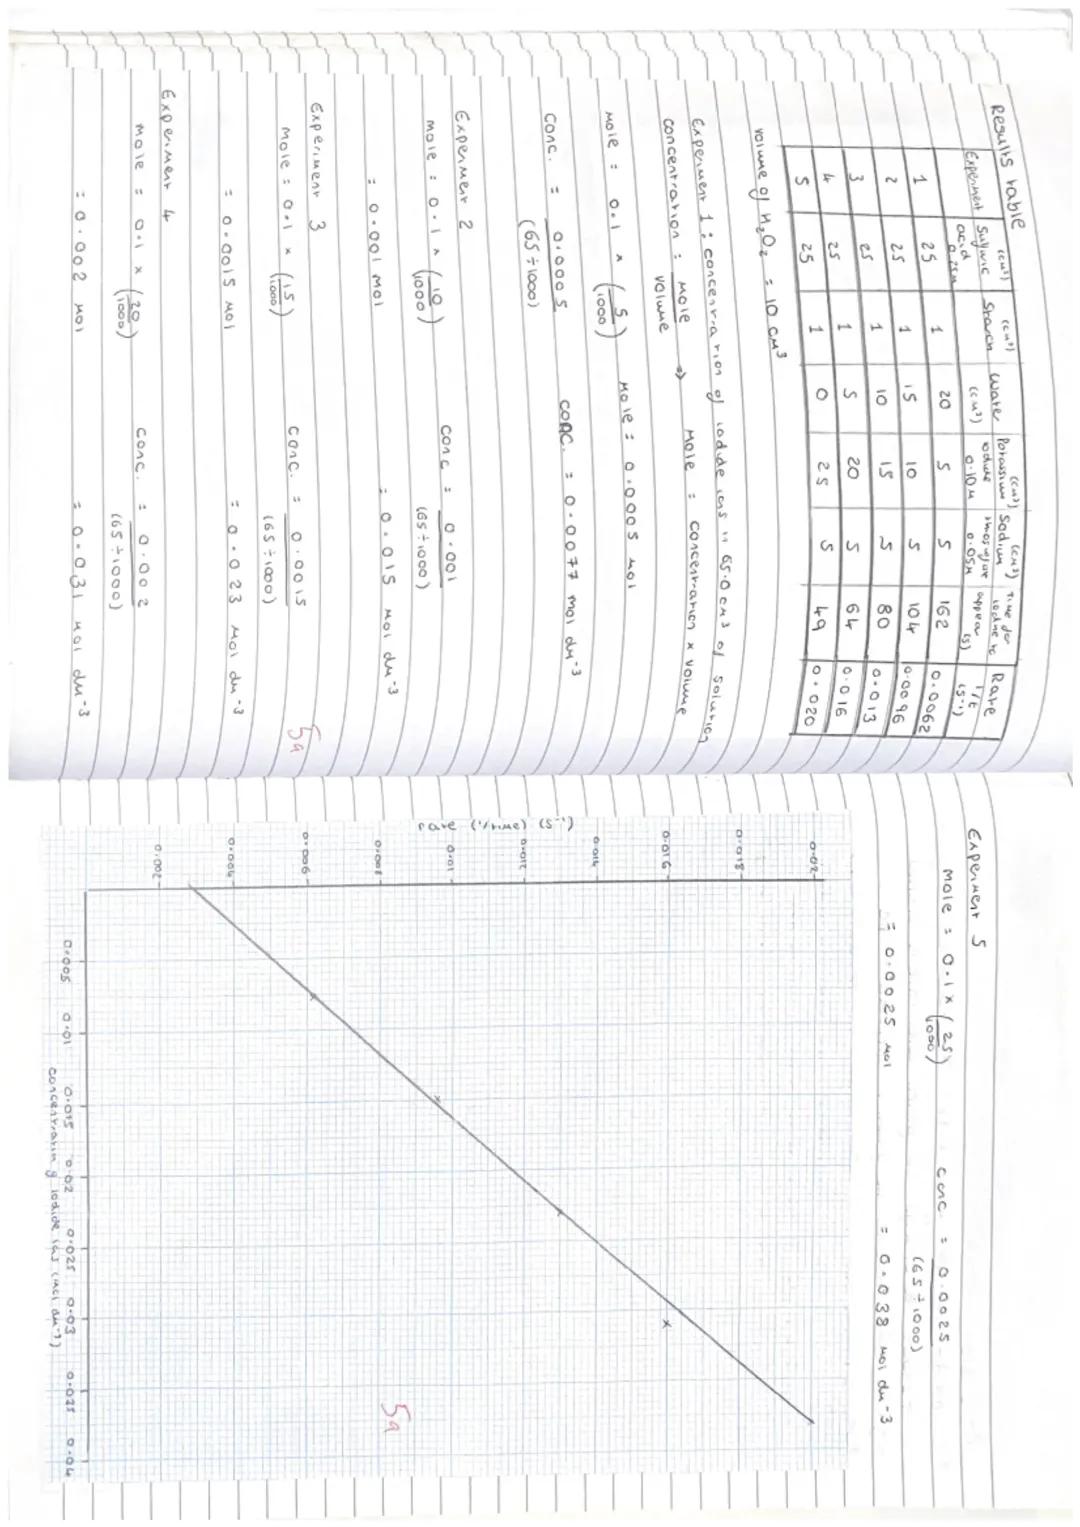 Results table
Experiment | Sulfuric acid 0.25M (cm³) | Starch (cm³) | Water (cm³) | Potassium iodide 0.10M (cm³) | Sodium thiosulfate 0.05M (cm³) | Time for iodine to appear (s) | Rate 1/t (s⁻¹)
1 | 25 | 1 | 20 | 5 | 5 | 162 | 0.0062
2 | 25 | 1 | 15 | 10 | 5 | 104 | 0.0096
3 | 25 | 1 | 10 | 15 | 5 | 80 | 0.013
4 | 25 | 1 | 5 | 20 | 5 | 64 | 0.016
5 | 25 | 1 | 0 | 25 | 5 | 49 | 0.020
volume of H₂O₂ = 10 cm³
Experiment 1: concentration of iodide ions in 65.0 cm³ of solution
concentration = mole / volume ⇒ Mole = concentration × volume
Mole = 0.1 × (5/1000) Mole = 0.0005 mol
conc. = 0.0005 / (65÷1000) conc. = 0.0077 mol dm⁻³
Experiment 2
mole = 0.1 × (10/1000) conc = 0.001 / (65÷1000)
= 0.001 mol = 0.015 mol dm⁻³
Experiment 3
Mole = 0.1 × (15/1000) conc. = 0.0015 / (65÷1000)
= 0.0015 mol = 0.023 mol dm⁻³
5a
Experiment 4
Mole = 0.1 × (20/1000) conc. = 0.002 / (65÷1000)
= 0.002 mol = 0.031 mol dm⁻³
Experiment 5
Mole = 0.1 × (25/1000) conc = 0.0025 / (65÷1000)
= 0.0025 mol = 0.038 mol dm⁻³
rate (1/time) (s⁻¹)
0.02
0.018
0.016
0.014
0.012
0.01
0.008
0.006
0.004
0.002
5a
0.005 0.01 0.015 0.02 0.025 0.03 0.035 0.04
concentration of iodide ions (mol dm⁻³)